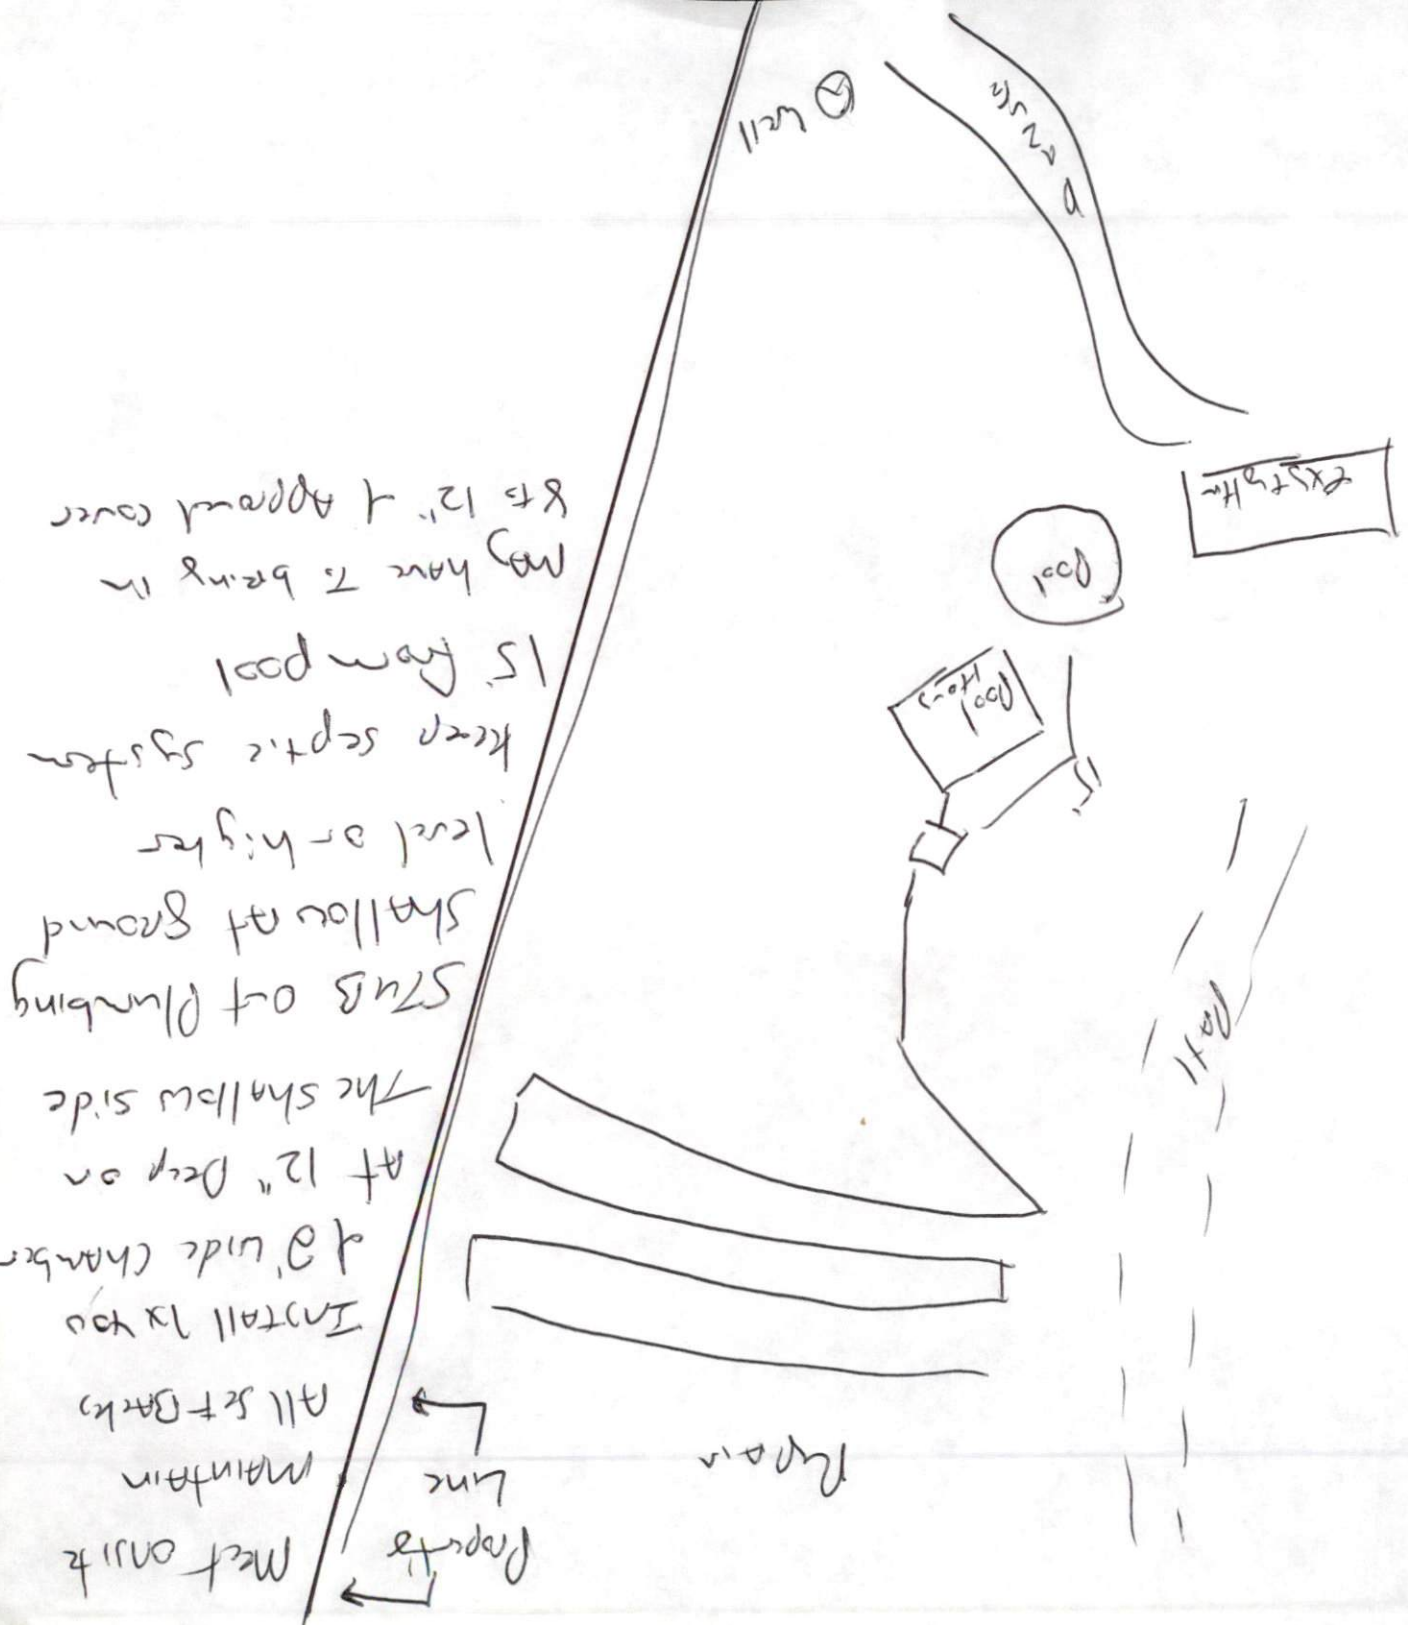 Meet onsite
Maintain
All setBacks
Install 1x400
of 3' wide chamber
At 12" Deep on
The shallow side
STUB Out Plumbing
shallow At ground
level or higher
keep septic system
15' from pool
may have to bring in
8 to 12" of Approved cover
Property
Line
Repair
Path
15'
Pool
House
Pool
Well